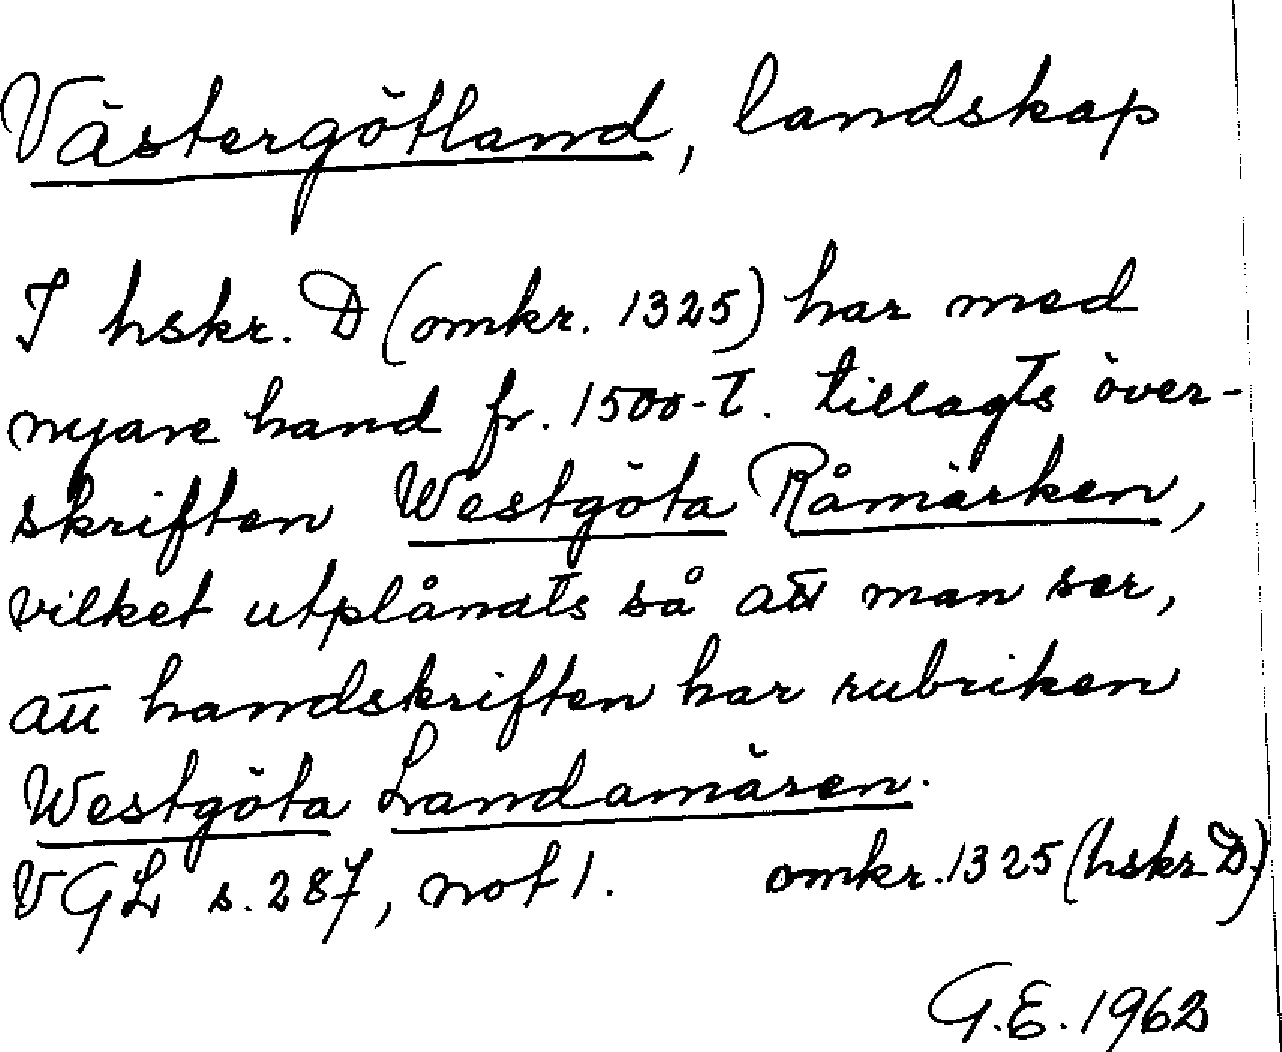 Västergötland, landskap
I hskr. D (omkr. 1325) har med
nyare hand fr. 1500-t. tillagts över-
skriften Westgöta Råmärken,
vilket utplånats så att man ser,
att handskriften har rubriken
Westgöta Landamären.
VGL s. 287, not 1. omkr. 1325 (hskr. D)
G.E. 1962